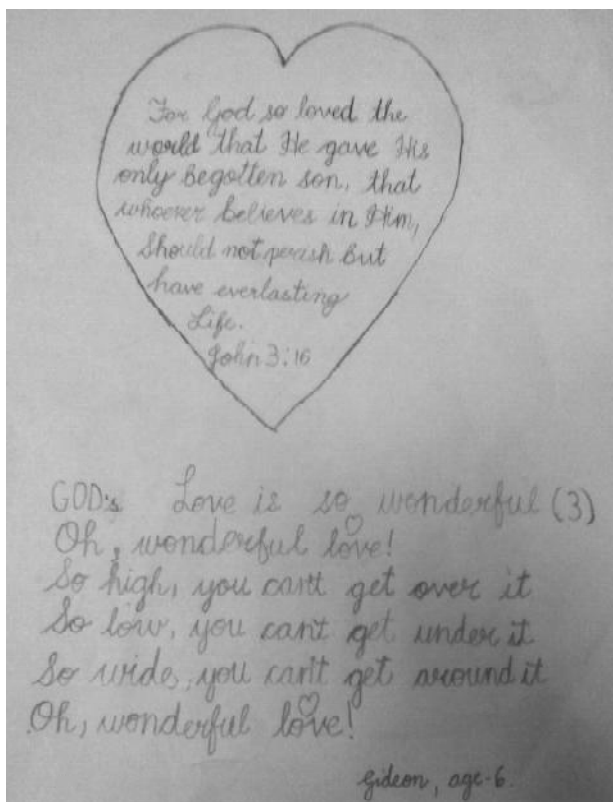 For God so loved the
world that He gave His
only Begotten son, that
whoever believes in Him,
Should not perish But
have everlasting
Life.
John 3:16
GOD's Love is so wonderful (3)
Oh, wonderful love!
So high, you can't get over it
So low, you can't get under it
So wide, you can't get around it
Oh, wonderful love!
Gideon, age-6.